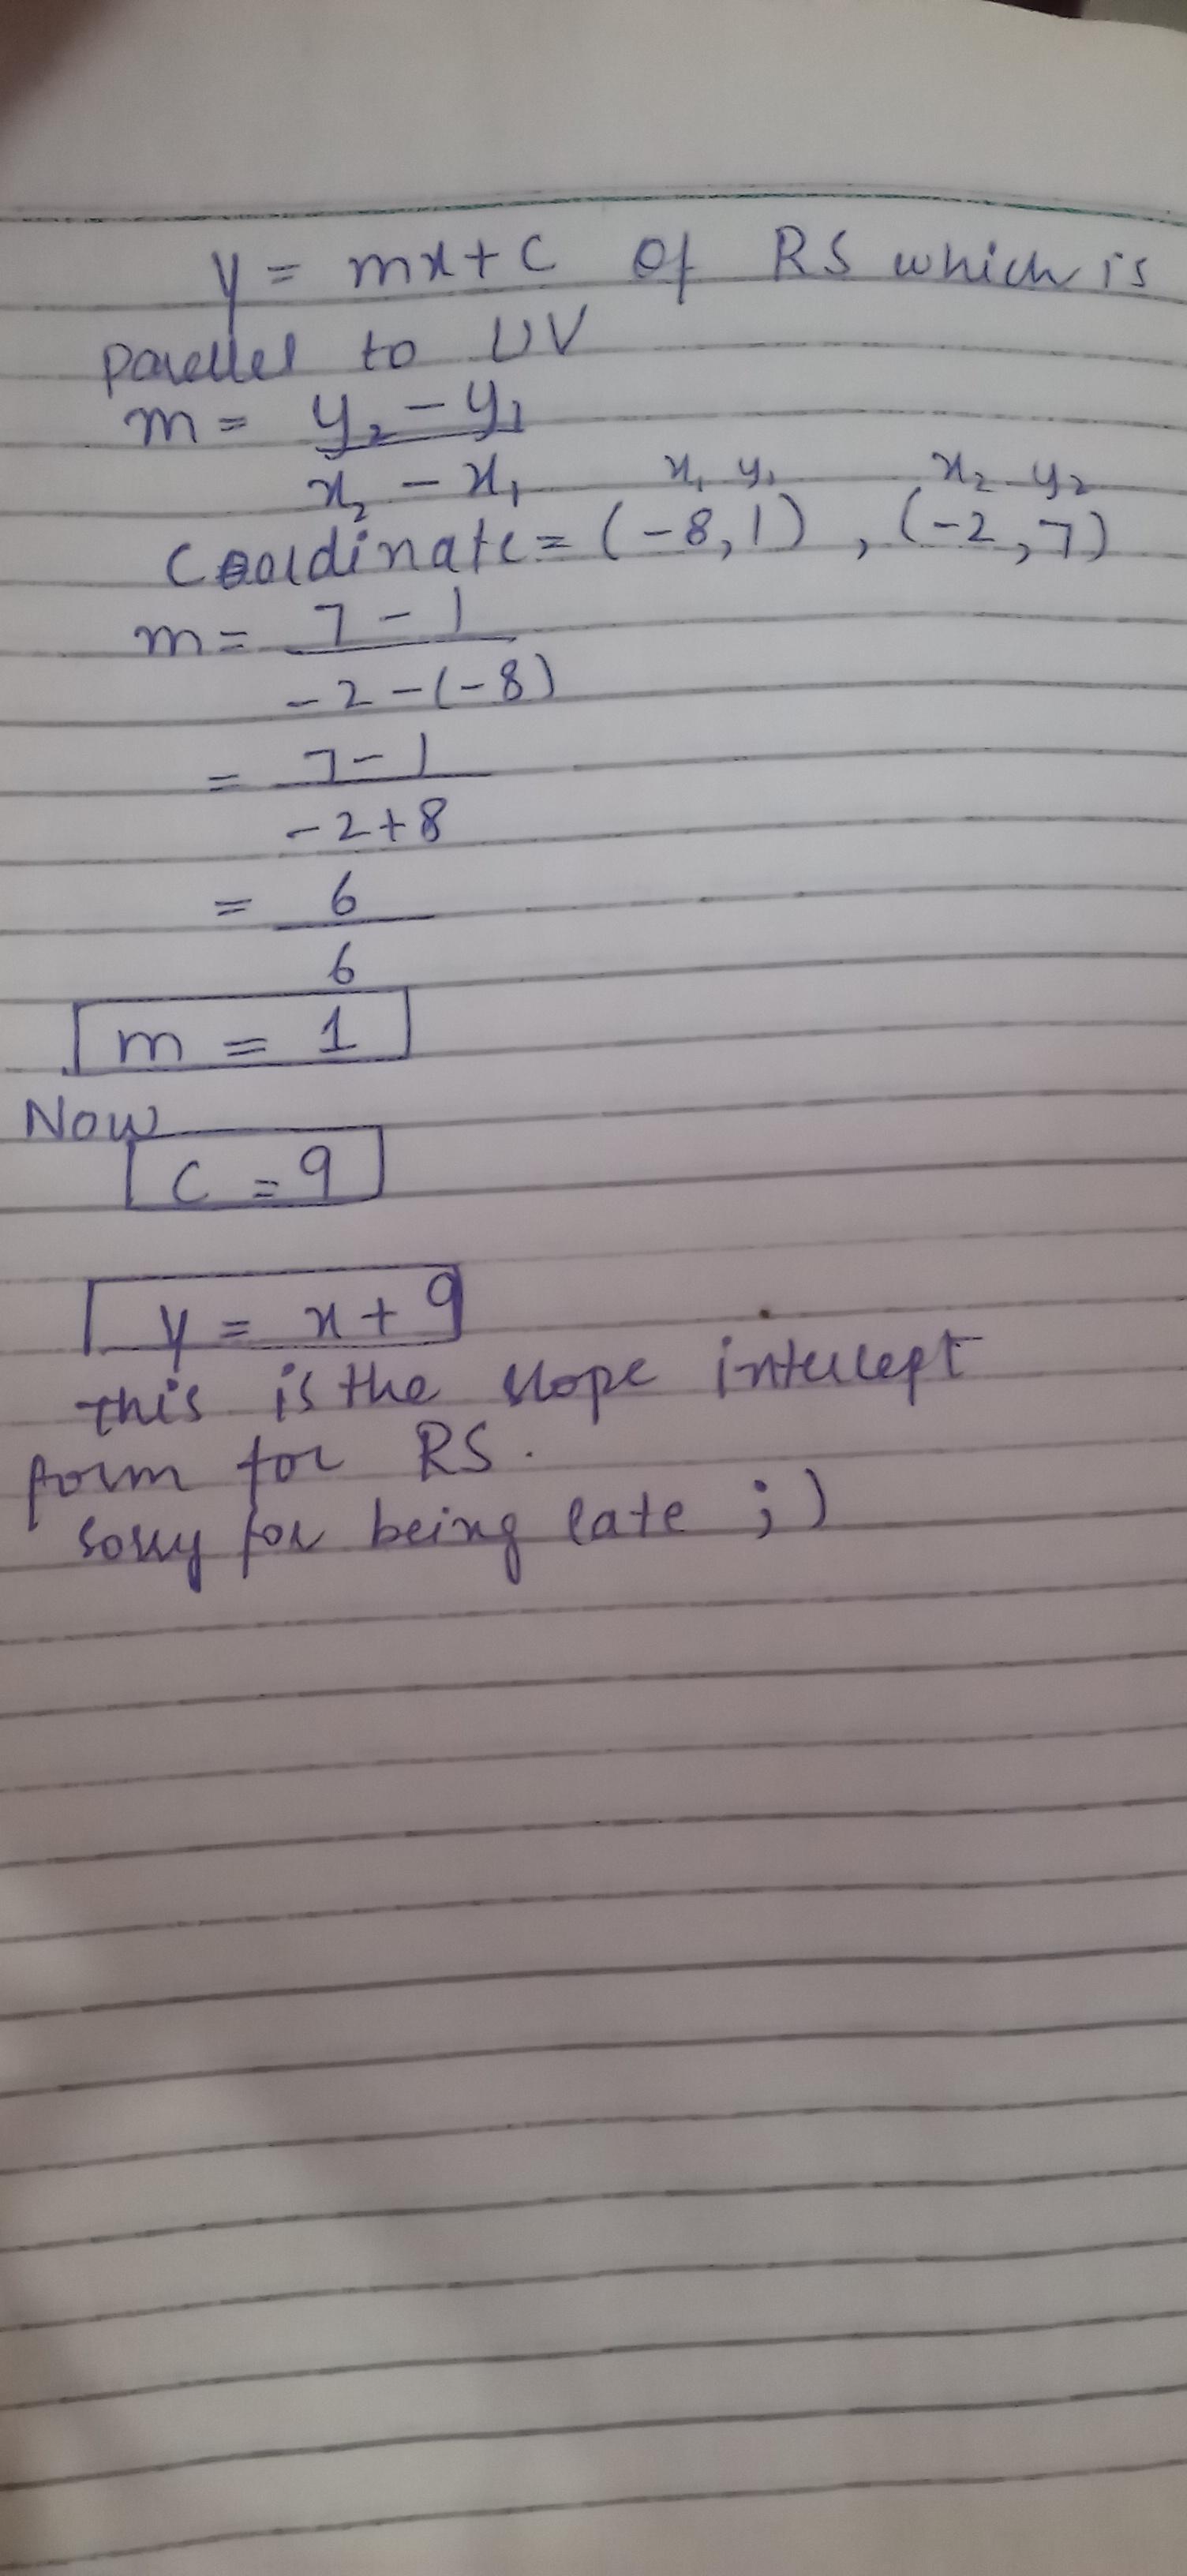 y = mx + c of RS which is
parellel to UV
m = y₂ - y₁
x₂ - x₁ x₁ y₁ x₂ y₂
Coordinate = (-8, 1) , (-2, 7)
m = 7 - 1
-2 - (-8)
= 7 - 1
-2 + 8
= 6
6
m = 1
Now
c = 9
y = x + 9
this is the slope intercept
form for RS.
sorry for being late ;)